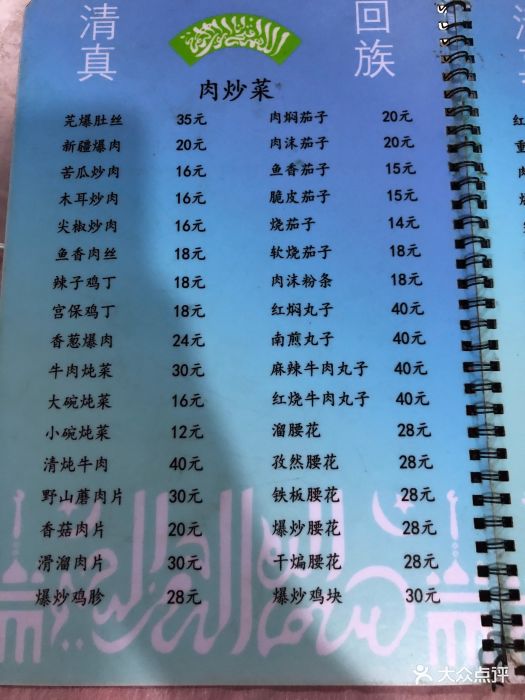 清真
回族
肉炒菜
芫爆肚丝 35元 肉焖茄子 20元
新疆爆肉 20元 肉沫茄子 20元
苦瓜炒肉 16元 鱼香茄子 15元
木耳炒肉 16元 脆皮茄子 15元
尖椒炒肉 16元 烧茄子 14元
鱼香肉丝 18元 软烧茄子 18元
辣子鸡丁 18元 肉沫粉条 18元
宫保鸡丁 18元 红焖丸子 40元
香葱爆肉 24元 南煎丸子 40元
牛肉炖菜 30元 麻辣牛肉丸子 40元
大碗炖菜 16元 红烧牛肉丸子 40元
小碗炖菜 12元 溜腰花 28元
清炖牛肉 40元 孜然腰花 28元
野山蘑肉片 30元 铁板腰花 28元
香菇肉片 20元 爆炒腰花 28元
滑溜肉片 30元 干煸腰花 28元
爆炒鸡胗 28元 爆炒鸡块 30元
大众点评